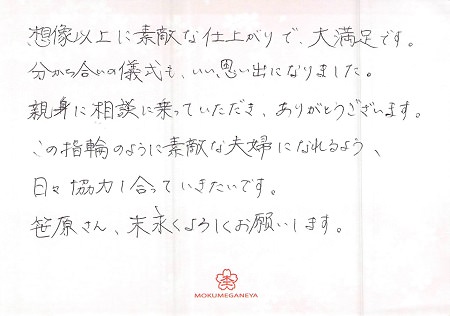 想像以上に素敵な仕上がりで、大満足です。
分かち合いの儀式も、いい思い出になりました。
親身に相談に乗っていただき、ありがとうございます。
この指輪のように素敵な夫婦になれるよう、
日々協力し合っていきたいです。
笹原さん、末永くよろしくお願いします。
MOKUMEGANEYA